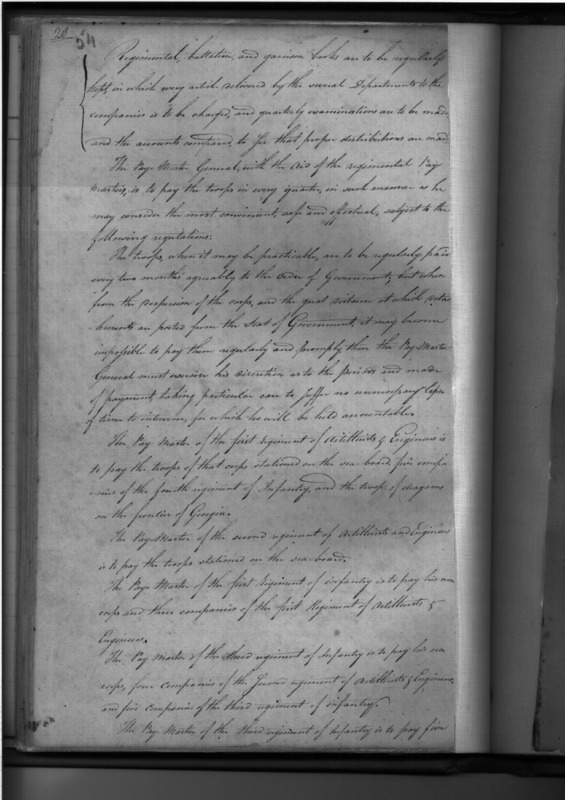 54
Regimental, battalion, and garrison books are to be regularly
kept, in which every article delivered by the several Departments to the
companies is to be charged, and quarterly examinations are to be made
and the accounts compared, to see that proper distributions are made
The Pay Master General, with the aid of the regimental Pay
Masters, is to pay the troops in every quarter, in such manner as he
may consider the most convenient, safe and effectual, subject to the
following regulations.
The troops, when it may be practicable, are to be regularly paid
every two months agreeably to the order of Government, but when
from the dispersion of the corps, and the great distance at which detac
hments are posted from the Seat of Government, it may become
impossible to pay them regularly and promptly, then the Pay Master
General must exercise his discretion as to the periods and mode
of payment, taking particular care to suffer no unnecessary lapse
of time to intervene, for which he will be held accountable.
The Pay Master of the first regiment of Artillerists & Engineers is
to pay the troops of that corps stationed on the sea board, five compa
nies of the fourth regiment of Infantry, and the troop of dragoons
on the frontier of Georgia.
The Pay Master of the second regiment of Artillerists and Engineers
is to pay the troops stationed on the sea board.
The Pay Master of the first regiment of infantry is to pay his own
corps and three companies of the first Regiment of Artillerists &
Engineers.
The Pay Master of the third regiment of Infantry is to pay his own
corps, four companies of the Second regiment of Artillerists & Engineers
and five companies of the third regiment of infantry.
The Pay Master of the third regiment of Infantry is to pay five